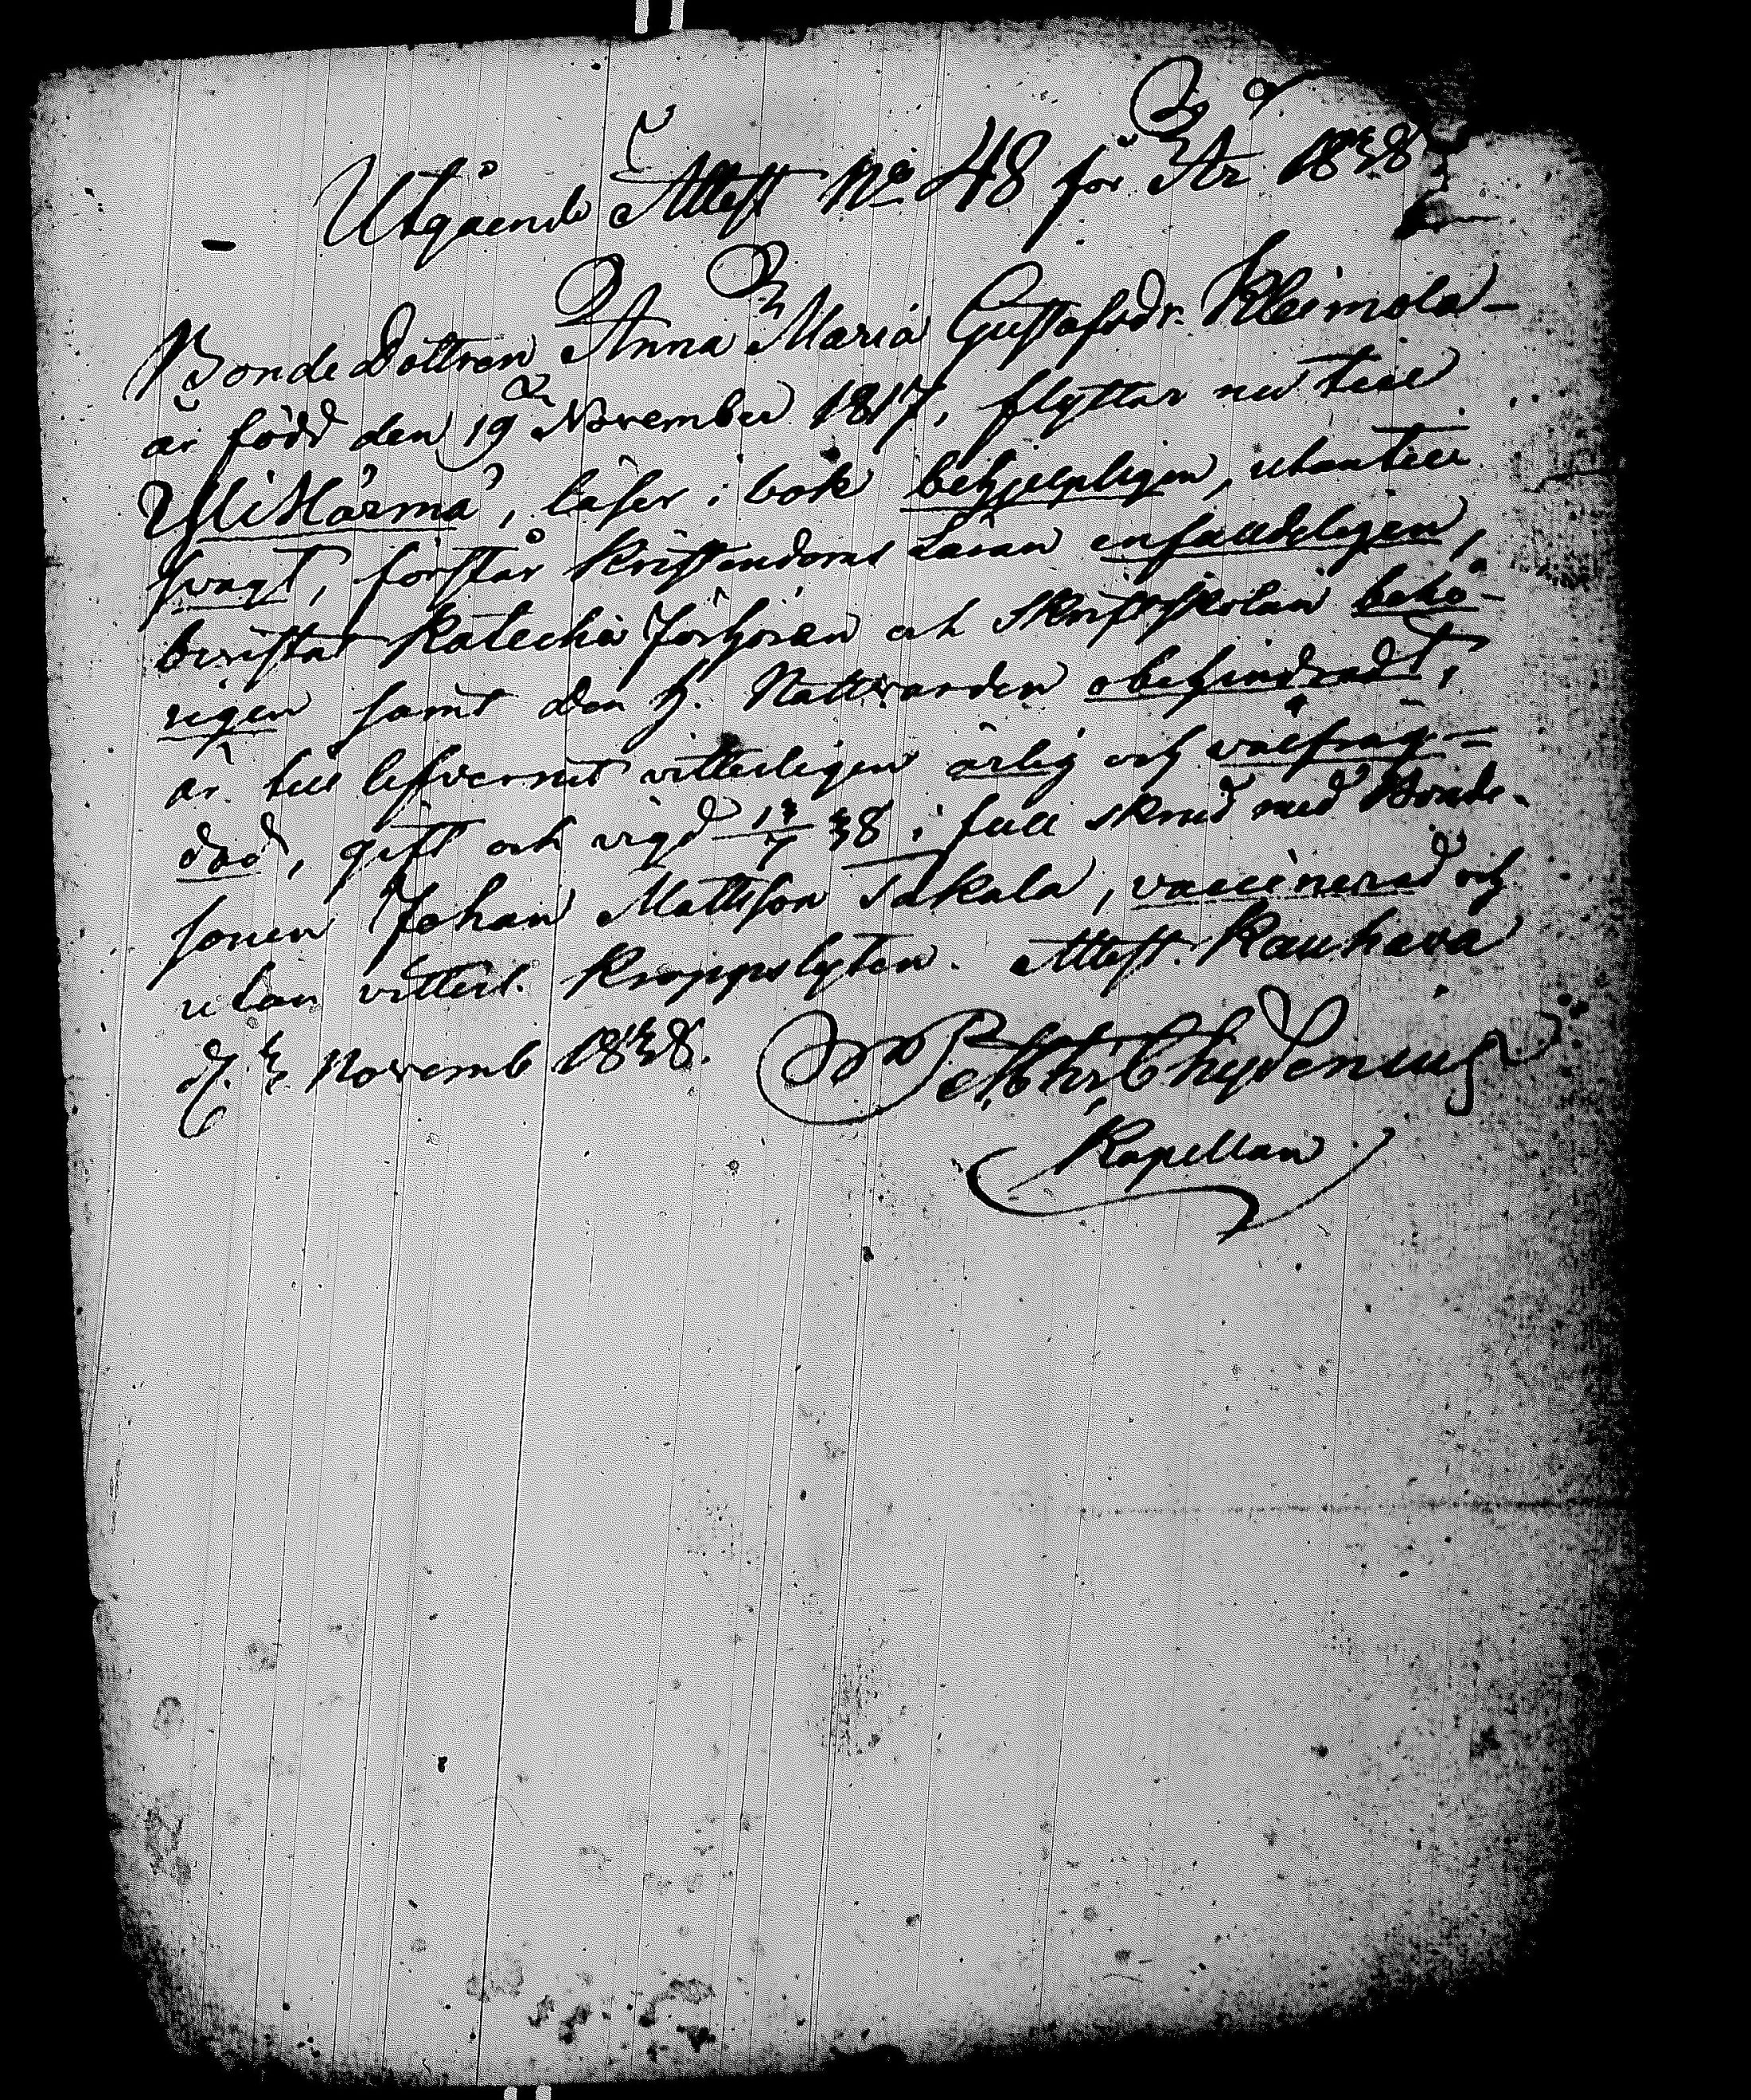 Utgående Attest No 48 för År 1838
Bonde Dottren Anna Maria Gustafsdr. Kleimola
är född den 19 November 1817, flyttar nu till
YliHärmä, läser i bok behjelpligen, utantill
svagt, förstår Kristendoms Läran enfalldeligen,
bevistat Katechis Förhören och Skriftskolan behö-
rigen samt den H. Nattvarden obehindradt,
är till lefvernet vitterligen ärlig och välfräg-
dad, gift och vigd 13/7 38 i full skrud med Bonde-
sonen Johan Mattsson Takala, vaccinerad och
utan vitterl. Kroppslyten. Attest. Kauhava
d. 3 Novemb 1838. Chydenius
Kapellan